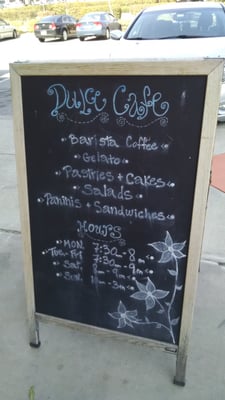 Dulce Cafe
Barista Coffee
Gelato
Pastries + Cakes
Salads
Paninis + Sandwiches
Hours
Mon. 7:30 - 8
Tue-Fri 7:30 - 9
Sat.
Sun.